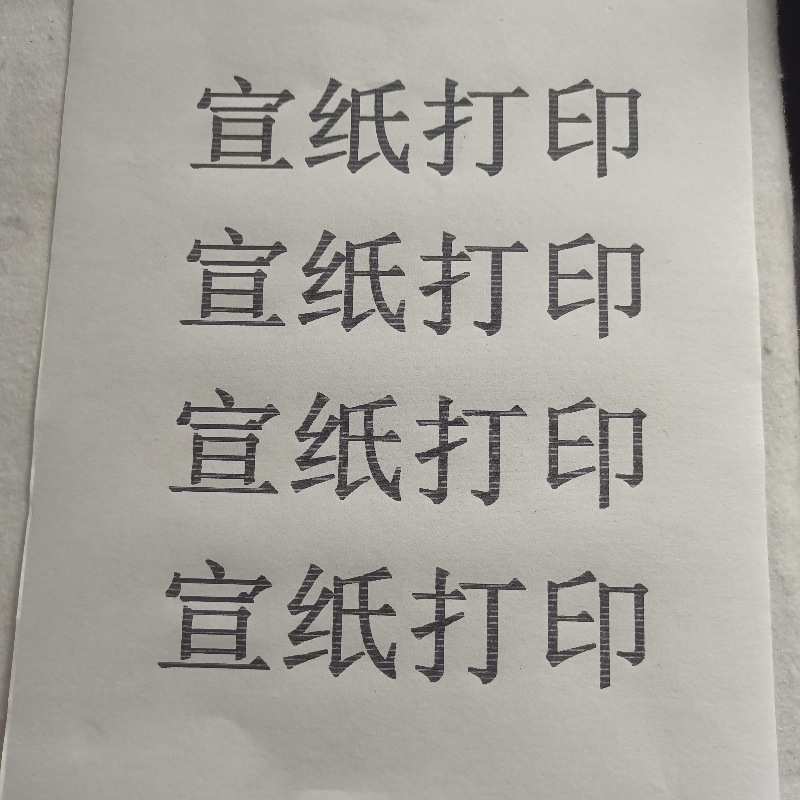 宣纸打印
宣纸打印
宣纸打印
宣纸打印